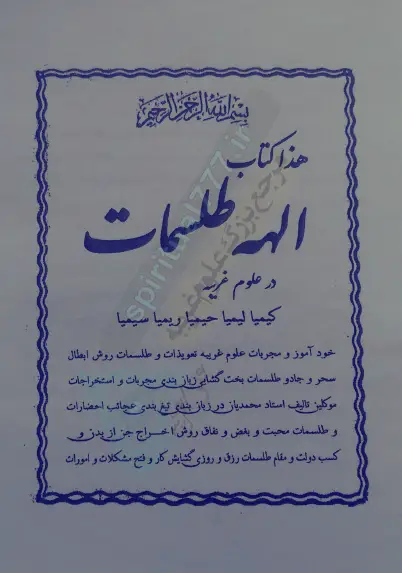 بسم الله الرحمن الرحیم
هذا کتاب
الهه طلسمات
در علوم غریبه
کیمیا لیمیا حیمیا ریمیا سیمیا
خود آموز و مجربات علوم غریبه تعویذات و طلسمات روش ابطال
سحر و جادو طلسمات بخت گشایی زباز بندی مجربات و استخراجات
موکلین تالیف استاد محمدیاز در زباز بندی تیغ بندی عجائب احضارات
و طلسمات محبت و بغض و نفاق روش اخراج جز از بدز و
کسب دولت و مقام طلسمات رزق و روزی گشایش کار و فتح مشکلات و امورات
spiritual777.ir
مرجع بزرگ علوم غریبه